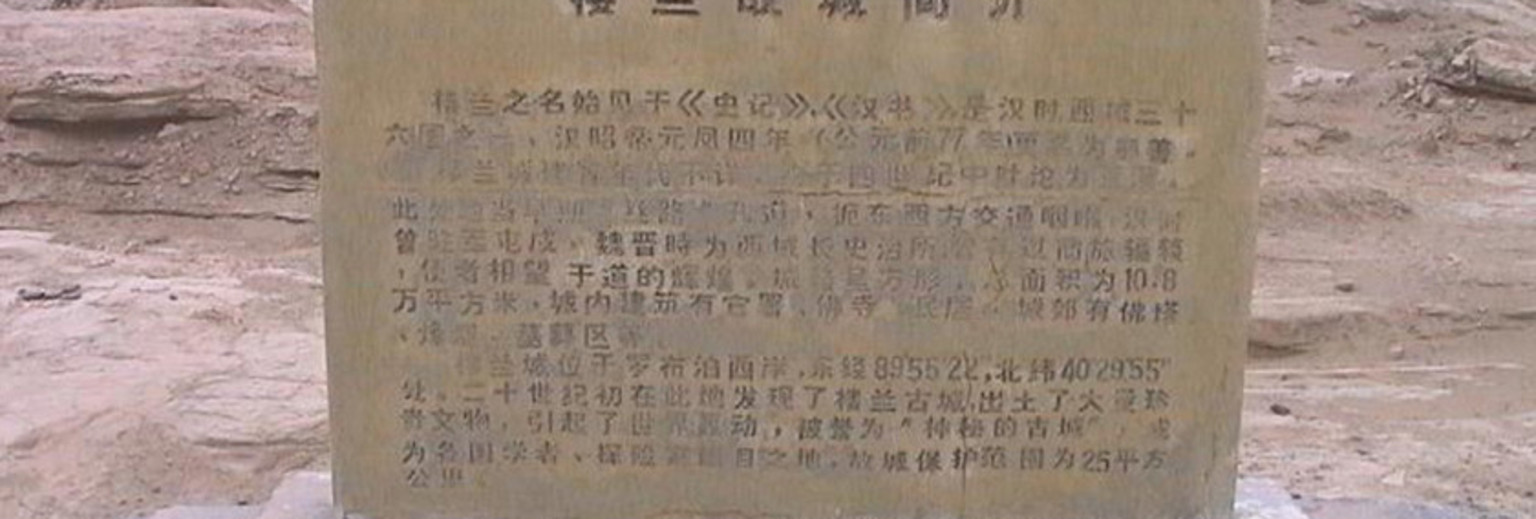 楼兰故城简介
楼兰之名始见于《史记》、《汉书》是汉时西域三十
六国之一、汉昭帝元凤四年（公元前77年）更名为鄯善。
楼兰城 于四世纪中叶沦为
此 当早期 丝路 孔道，扼东西方交通咽喉，汉时
曾驻军屯戍，魏晋時为西域长史治所， 商旅辐辏
，使者相望于道的辉煌。城 呈方形， 面积为10.8
万平方米，城内建筑有官署、佛寺、民居。城郊有佛塔
、烽燧、墓葬区等。
楼兰城位于罗布泊西岸，东经89°55′22″，北纬40°29′55″
处。二十世纪初在此地发现了楼兰古城，出土了大量珍
贵文物，引起了世界轰动，被誉为“神秘的古城”，成
为各国学者、探险家 目之地。故城保护范围为25平方
公里。